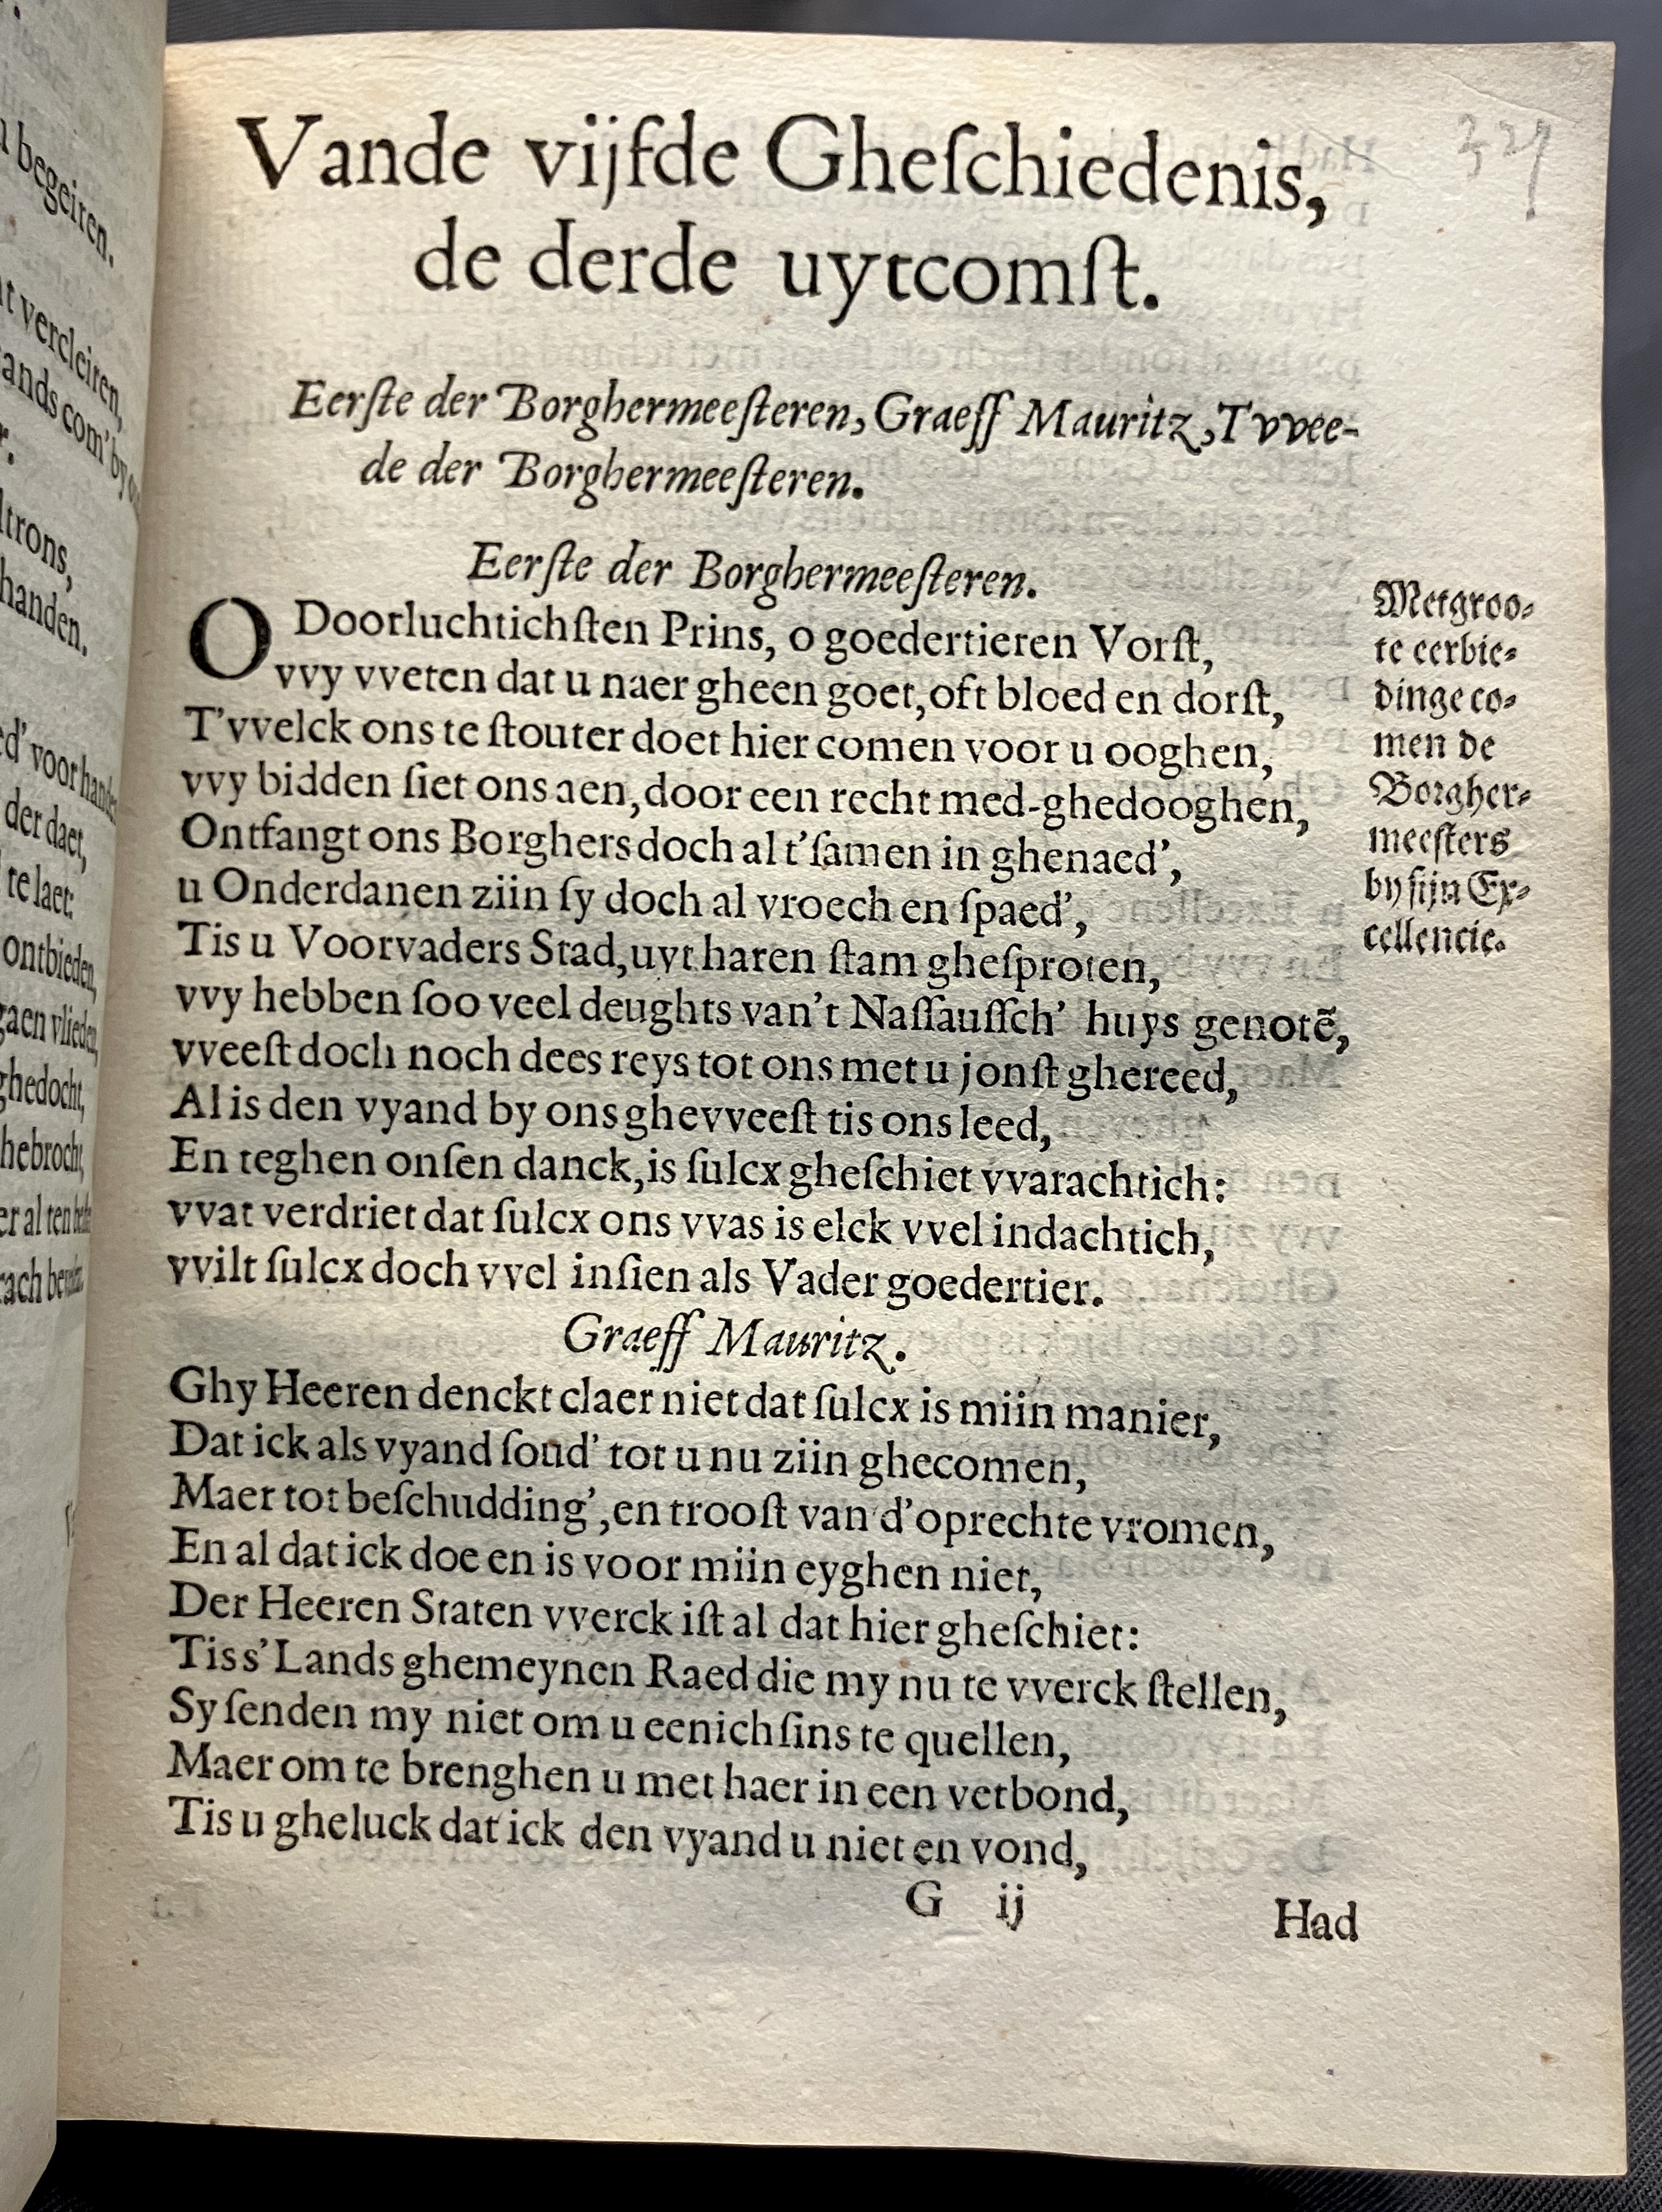 Vande vijfde Gheſchiedenis,
de derde uytcomſt.
Eerſte der Borghermeeſteren, Graeff Mauritz, Tvvee-
de der Borghermeeſteren.
Eerſte der Borghermeeſteren.
O Doorluchtichſten Prins, o goedertieren Vorſt,
vvy vveten dat u naer gheen goet, oft bloed en dorſt,
T'vvelck ons te ſtouter doet hier comen voor u ooghen,
vvy bidden ſiet ons aen, door een recht med-ghedooghen,
Ontfangt ons Borghers doch al t'ſamen in ghenaed',
u Onderdanen ziin ſy doch al vroech en ſpaed',
Tis u Voorvaders Stad, uyt haren ſtam gheſproten,
vvy hebben ſoo veel deughts van't Naſſauſſch' huys genotẽ,
vveeſt doch noch dees reys tot ons met u jonſt ghereed,
Al is den vyand by ons ghevveeſt tis ons leed,
En teghen onſen danck, is ſulcx gheſchiet vvarachtich:
vvat verdriet dat ſulcx ons vvas is elck vvel indachtich,
vvilt ſulcx doch vvel inſien als Vader goedertier.
Graeff Mauritz.
Ghy Heeren denckt claer niet dat ſulcx is miin manier,
Dat ick als vyand ſoud' tot u nu ziin ghecomen,
Maer tot beſchudding', en trooſt van d'oprechte vromen,
En al dat ick doe en is voor miin eyghen niet,
Der Heeren Staten vverck iſt al dat hier gheſchiet:
Tis s'Lands ghemeynen Raed die my nu te vverck ſtellen,
Sy ſenden my niet om u eenich ſins te quellen,
Maer om te brenghen u met haer in een verbond,
Tis u gheluck dat ick den vyand u niet en vond,
G ij
Had
Met groo⸗
te eerbie⸗
dinge co⸗
men de
Borgher⸗
meeſters
by ſijn Ex⸗
cellencie.
begeiten.
vercleiten,
ands com' by
trons,
handen.
ed' voor
der daet,
te laet:
ontbieden,
gaen vlieden,
ghedocht,
hebrocht,
er al ten